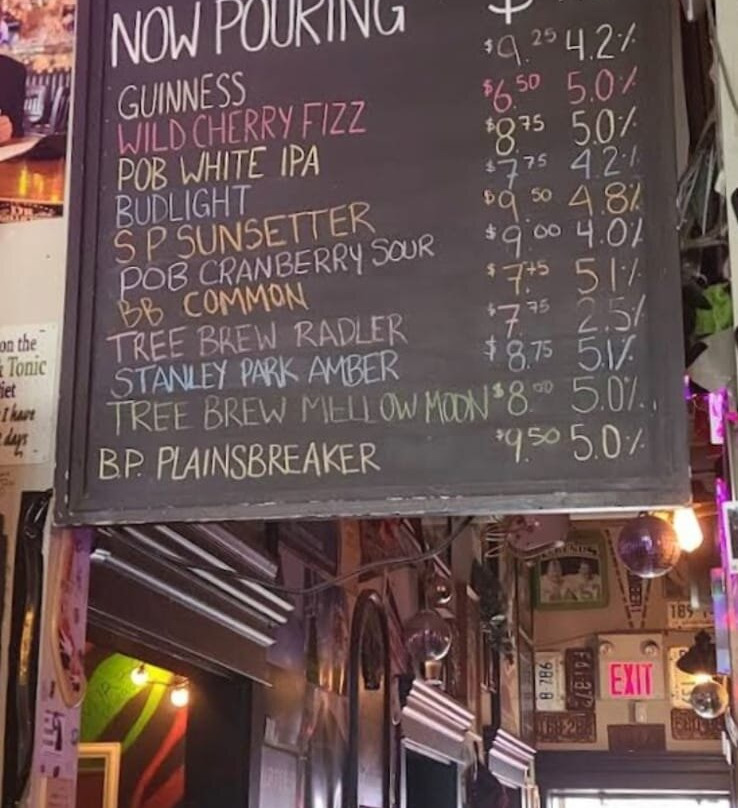 NOW POURING $
GUINNESS $9.25 4.2%
WILD CHERRY FIZZ $6.50 5.0%
POB WHITE IPA $8.75 5.0%
BUDLIGHT $7.75 4.2%
SP SUNSETTER $9.50 4.8%
POB CRANBERRY SOUR $9.00 4.0%
BB COMMON $7.75 5.1%
TREE BREW RADLER $7.75 2.5%
STANLEY PARK AMBER $8.75 5.1%
TREE BREW MELLOW MOON $8.00 5.0%
B.P. PLAINSBREAKER $9.50 5.0%
on the
Tonic
iet
I have
days
EXIT